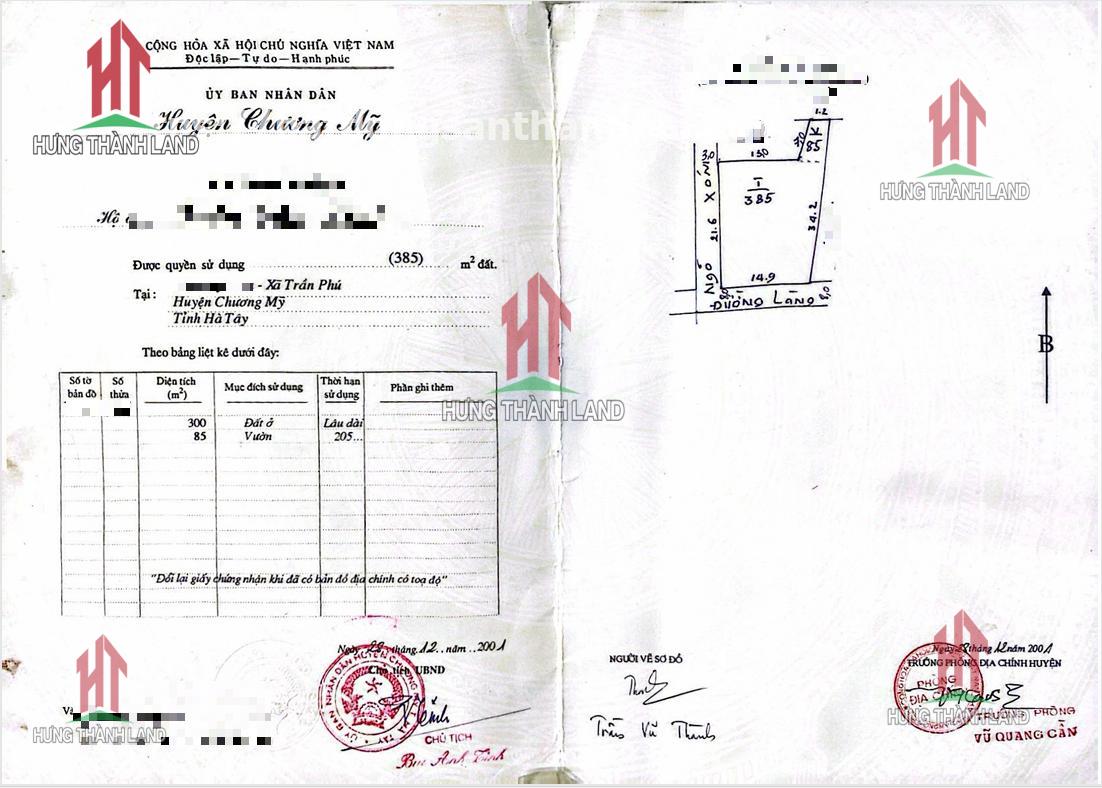 CỘNG HÒA XÃ HỘI CHỦ NGHĨA VIỆT NAM
Độc lập – Tự do – Hạnh phúc
ỦY BAN NHÂN DÂN
Huyện Chương Mỹ
HT
HƯNG THÀNH LAND
Hộ
Được quyền sử dụng (385) m² đất.
Tại : - Xã Trần Phú
Huyện Chương Mỹ
Tỉnh Hà Tây
Theo bảng liệt kê dưới đây:
Số tờ bản đồ Số thửa Diện tích (m²) Mục đích sử dụng Thời hạn sử dụng Phần ghi thêm
300 Đất ở Lâu dài
85 Vườn 205...
"Đổi lại giấy chứng nhận khi đã có bản đồ địa chính có toạ độ"
Ngày 28 tháng 12 năm 2001
Chủ tịch UBND
CHỦ TỊCH
HT
HƯNG THÀNH LAND
HT
HƯNG THÀNH LAND
1.2
K
85
3,0
13,0
T
385
21.6
34.2
14.9
8,0
8,0
NGÕ XÓM
ĐƯỜNG LÀNG
HT
HƯNG THÀNH LAND
B
NGƯỜI VẼ SƠ ĐỒ
Trần Vũ Thành
Ngày 28 tháng 12 năm 2001
TRƯỞNG PHÒNG ĐỊA CHÍNH HUYỆN
PHÒNG
ĐỊA CHÍNH
TRƯỞNG PHÒNG
VŨ QUANG CẦN
HT
HƯNG THÀNH LAND